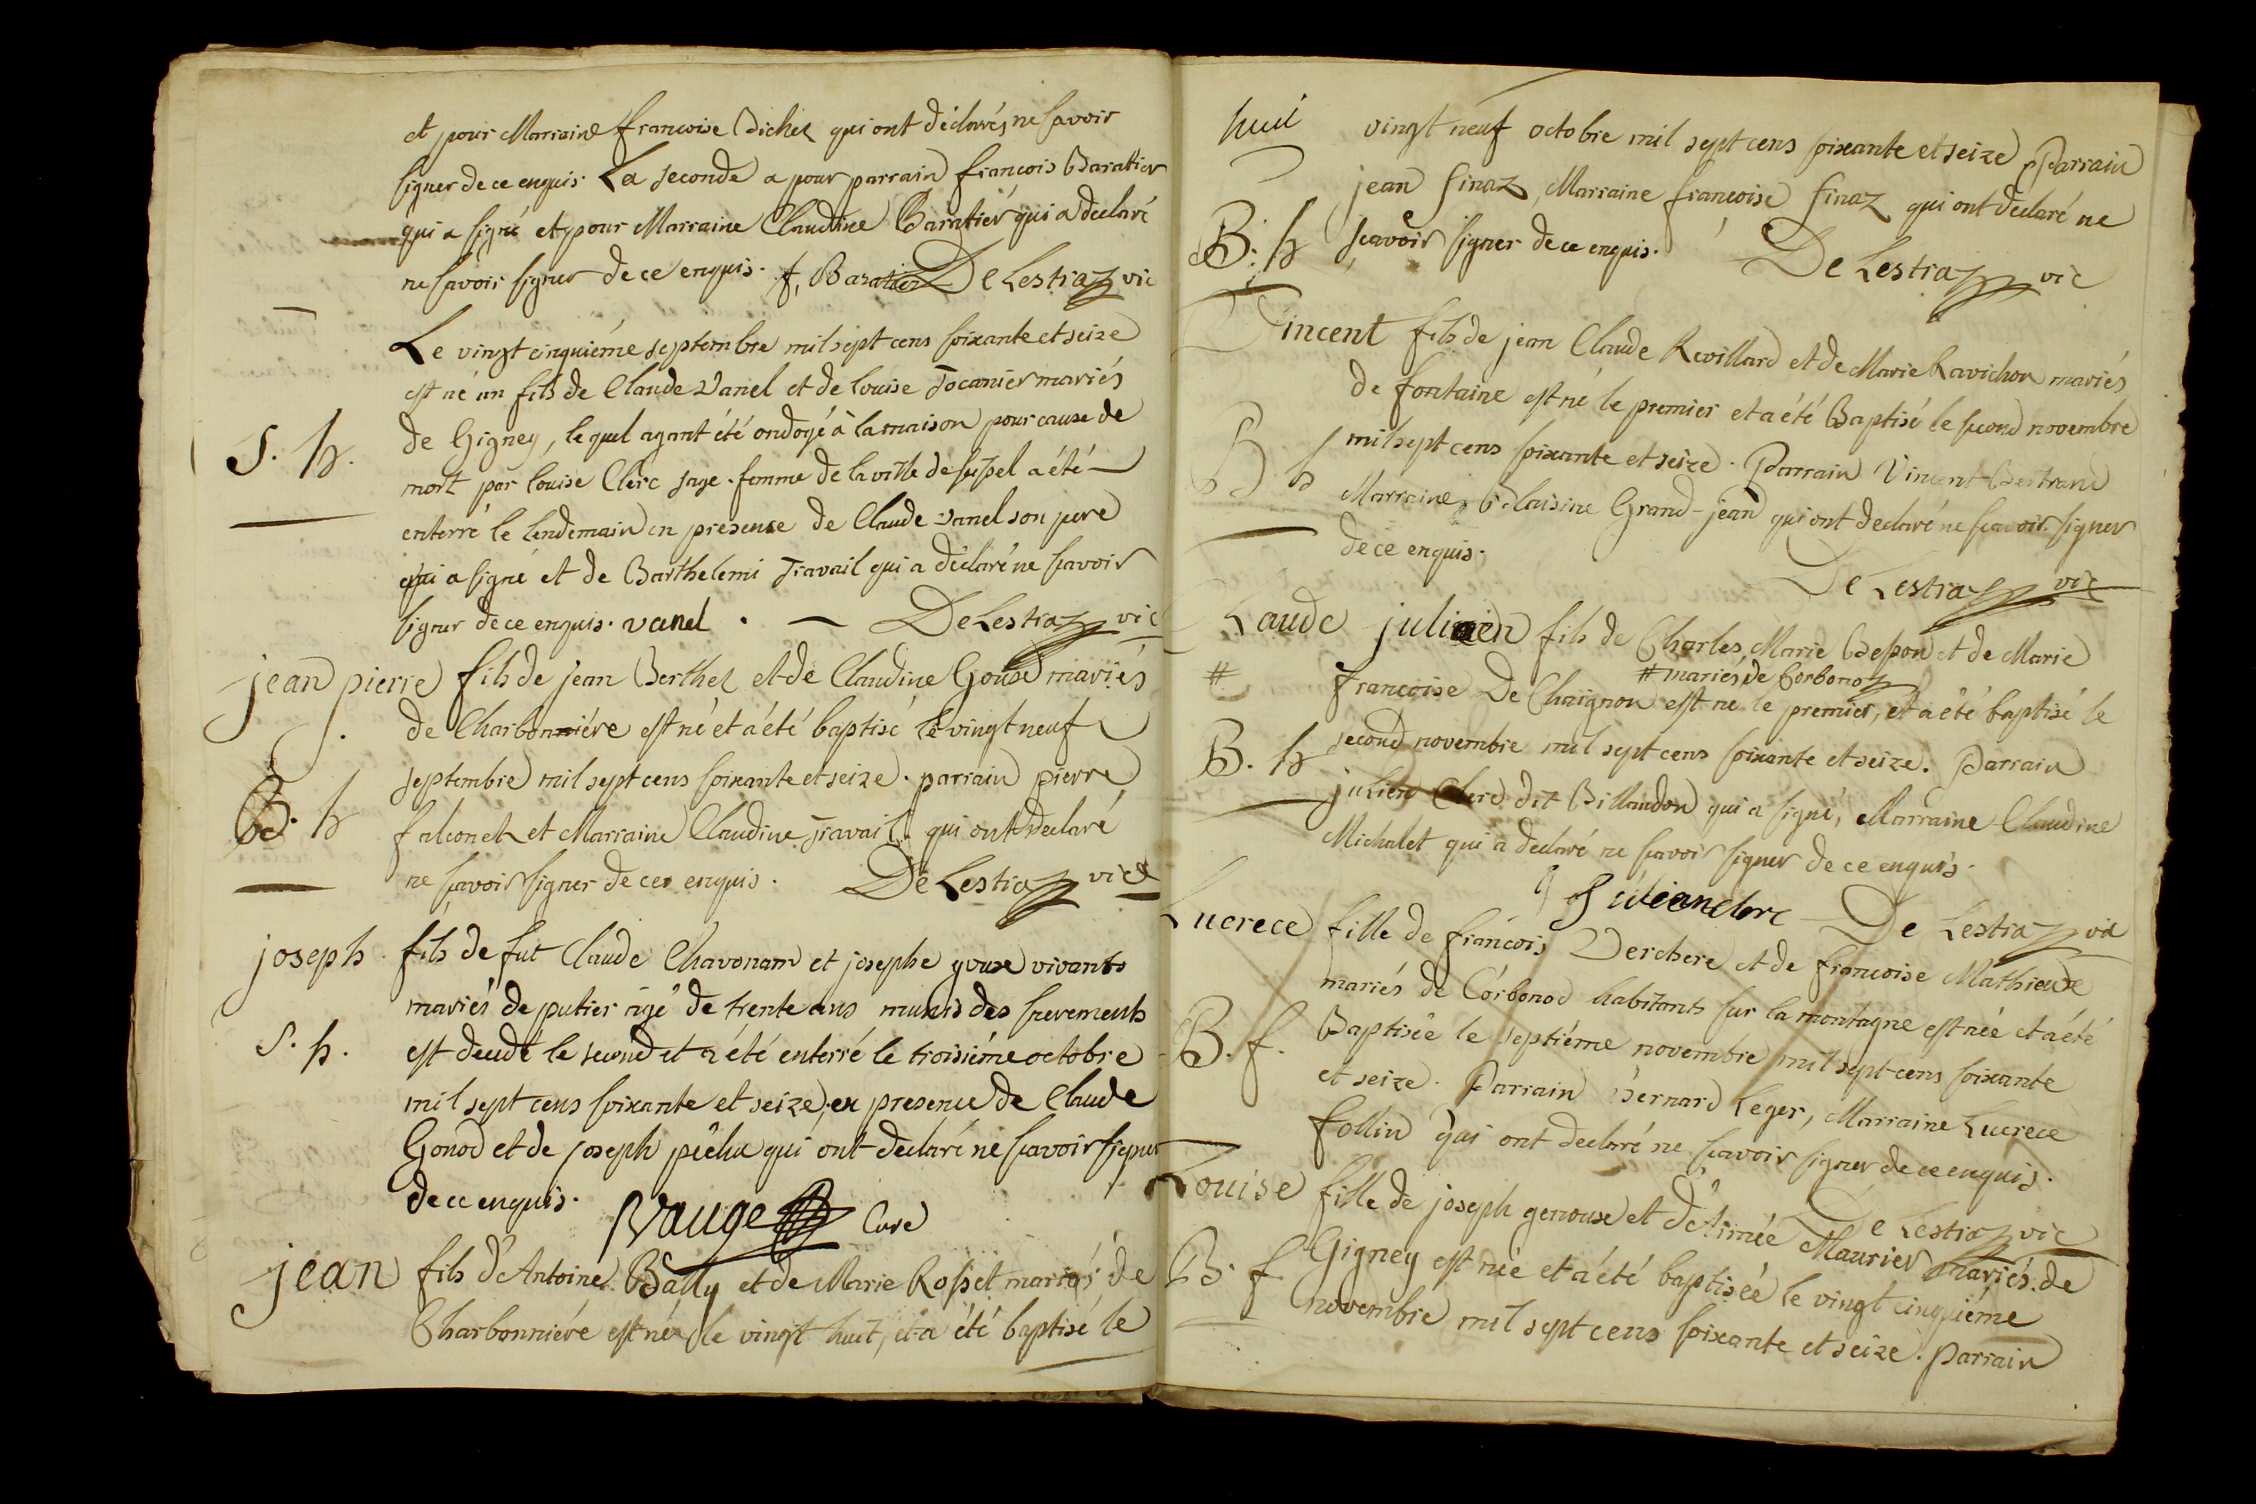 et pour Marraine francoise Dichez qui ont déclarés ne savoir
signer de ce enquis. La seconde a pour parrain francois Baratier
qui a signé et pour Marraine Claudine Baratier qui a declaré
ne savoir signer de ce enquis. f, Baratier De Lestraz vic
Le vingt cinquiéme septembre mil sept cens soixante et seize
est né un fils de Claude Vanel et de louise Tocanier mariés
S. h. de Gigney, lequel ayant été ondoyé à la maison pour cause de
mort par louise Clerc sage-femme de la ville de seyssel a été
enterré le lendemain en presence de Claude vanel son pere
qui a signé et de Barthelemi Travail qui a déclaré ne scavoir
signer de ce enquis. vanel . De Lestraz vic
jean pierre fils de jean Berthet et de Claudine Gouse mariés
de Charbonniére est né et a été baptisé le vingt neuf
septembre mil sept cens soixante et seize. parrain pierre
B. h falconet et Marraine Claudine Travail qui ont declaré
ne scavoir signer de ce enquis. De Lestraz vic
joseph fils de fut Claude Chavonam et josephe gouse vivants
mariés de putier agé de trente ans munis des sacrements
S. h. est décudé le second et a été enterré le troisiéme octobre
mil sept cens soixante et seize, en presence de Claude
Gonod et de joseph qui ont declaré ne scavoir signer
de ce enquis. Vauge Curé
jean fils d'Antoine Bally et de Marie Rosset mariés de
Charbonniére est né le vingt huit, et a été baptisé le
huit
vingt neuf octobre mil sept cens soixante et seize Parrain
jean finaz, Marraine francoise finaz qui ont declaré ne
B. h scavoir signer de ce enquis. De Lestraz vic
Vincent fils de jean Claude Revillard et de Marie Ravichon mariés
de fontaine est né le premier et a été Baptisé le second novembre
B h mil sept cens soixante et seize. Parrain Vincent Bertrand
Marraine Claudine Grand-jean qui ont declaré ne scavoir signer
de ce enquis.
De Lestraz vic
Claude julien fils de Charles Marie et de Marie
# mariés de Corbonoz
# francoise De Chaignon est né le premier, et a été baptisé le
B. h second novembre mil sept cens soixante et seize. Parrain
julien Clerc dit Billandon qui a signé, Marraine Claudine
Michalet qui a declaré ne scavoir signer de ce enquis.
julien clerc De Lestraz vic
Lucrece fille de francois Verchere et de francoise Mathieu
mariés de Corbonod habitants sur la montagne est née et a été
B. f. Baptisée le septiéme novembre mil sept cens soixante
et seize. Parrain Bernard Leger, Marraine Lucrece
follin qui ont declaré ne scavoir signer de ce enquis.
De Lestraz vic
Louise fille de joseph genouse et d'Aimée Maurier mariés de
B. f. Gigney est née et a été baptisée le vingt cinquiéme
novembre mil sept cens soixante et seize. Parrain